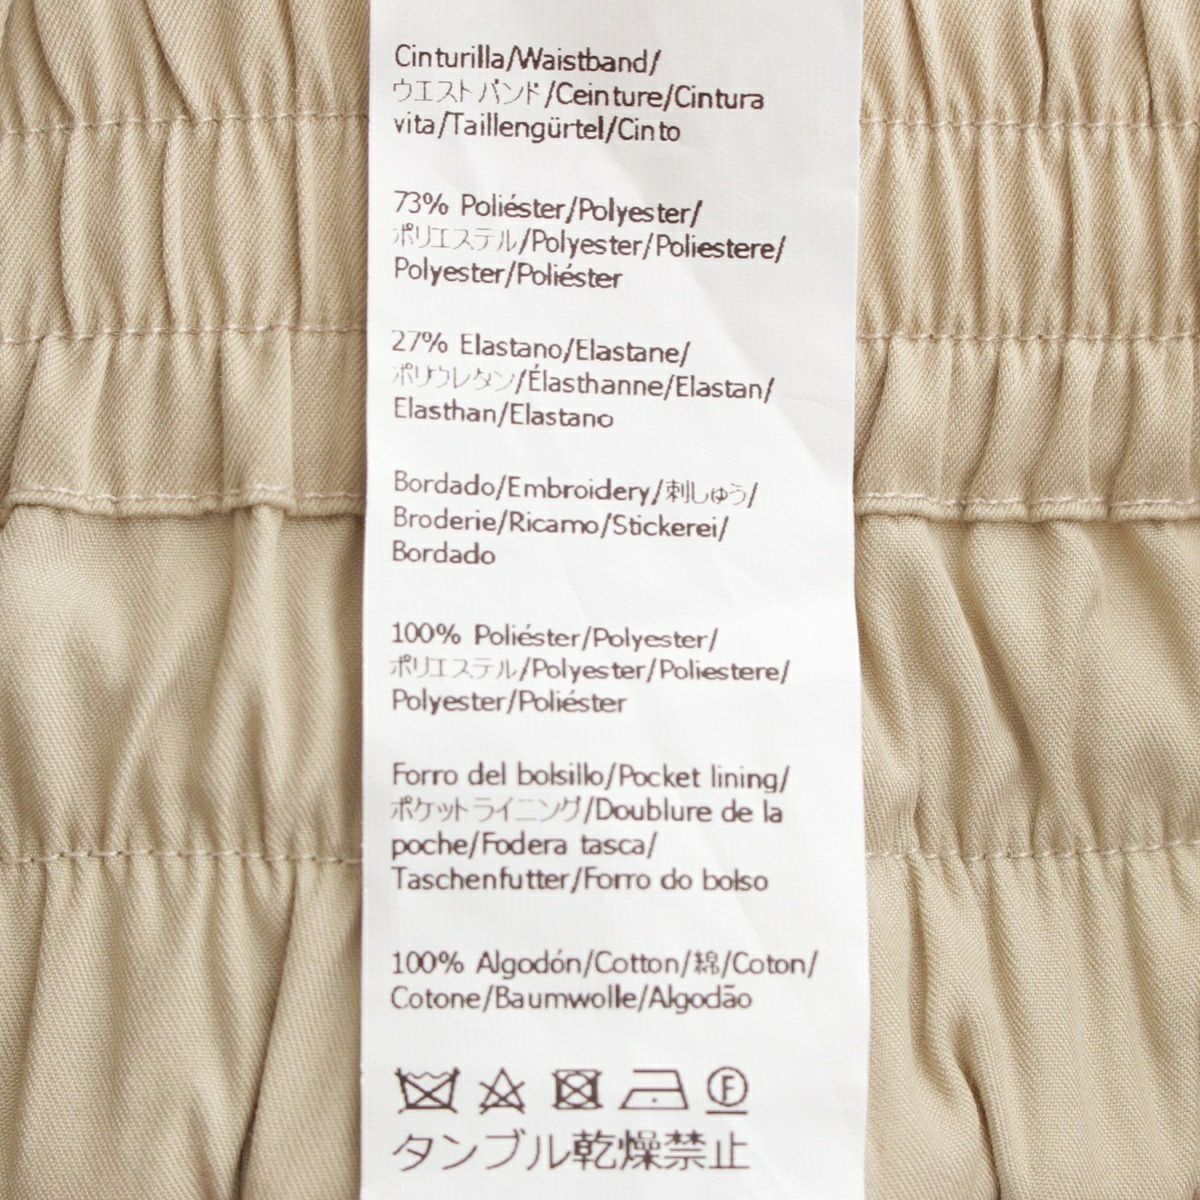 Cinturilla/Waistband/
ウエストバンド/Ceinture/Cintura
vita/Taillengürtel/Cinto
73% Poliéster/Polyester/
ポリエステル/Polyester/Poliestere/
Polyester/Poliéster
27% Elastano/Elastane/
ポリウレタン/Élasthanne/Elastan/
Elasthan/Elastano
Bordado/Embroidery/刺しゅう/
Broderie/Ricamo/Stickerei/
Bordado
100% Poliéster/Polyester/
ポリエステル/Polyester/Poliestere/
Polyester/Poliéster
Forro del bolsillo/Pocket lining/
ポケットライニング/Doublure de la
poche/Fodera tasca/
Taschenfutter/Forro do bolso
100% Algodón/Cotton/綿/Coton/
Cotone/Baumwolle/Algodão
F
タンブル乾燥禁止